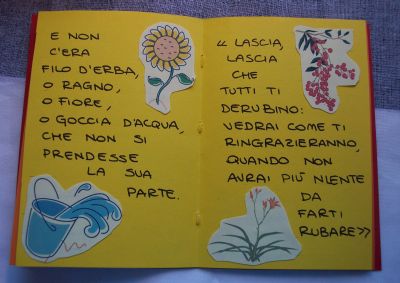 E NON
C'ERA
FILO D'ERBA,
O RAGNO,
O FIORE,
O GOCCIA D'ACQUA,
CHE NON SI
PRENDESSE
LA SUA
PARTE.
« LASCIA,
LASCIA
CHE
TUTTI TI
DERUBINO:
VEDRAI COME TI
RINGRAZIERANNO,
QUANDO NON
AVRAI PIÙ NIENTE
DA
FARTI
RUBARE»